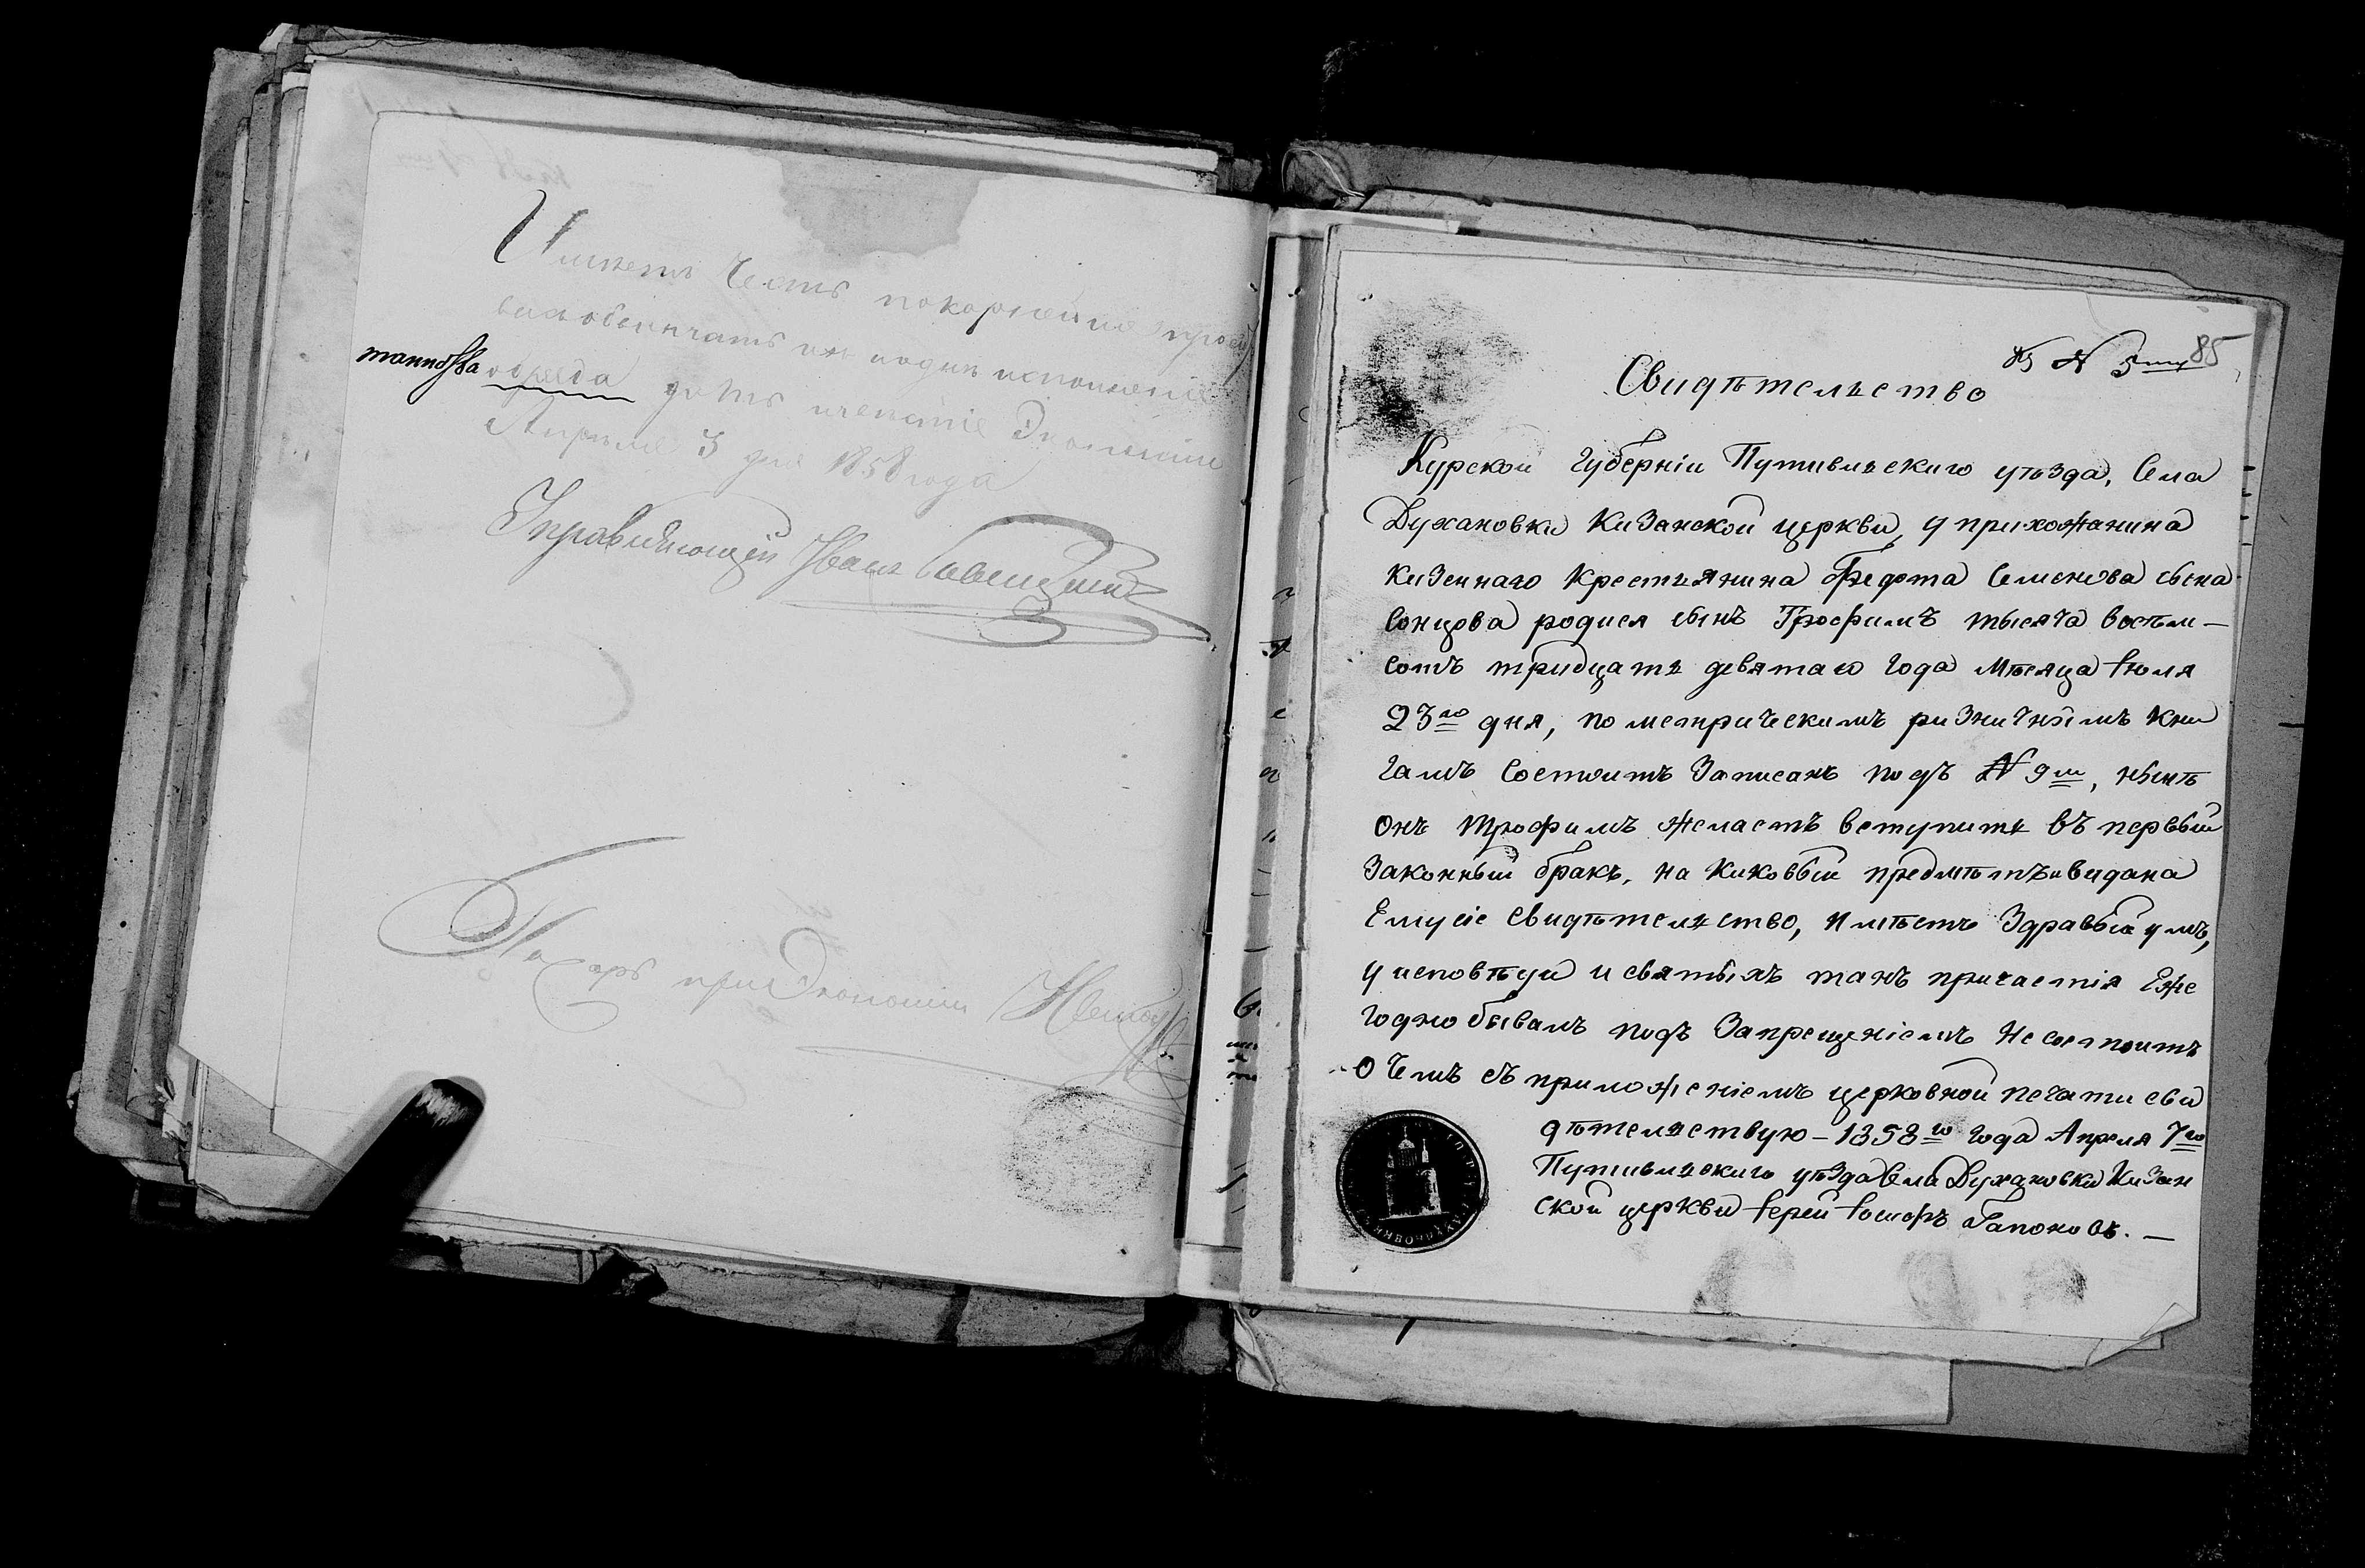 Имѣетъ честь покорнейше
обвенчать
таинства обряда
Апреля 3 дня 1858 года
Управляющей Иванъ
при Экономіи
85
К N 5му
Свидѣтельство
Курской Губерніи Путивльскаго уѣзда, Села
Духановки Казанской церкви, у прихожанина
Казеннаго Крестьянина Федота Семенова сына
Сонцова родися сынъ Трофимъ тысяча восѣм-
сотъ тридцать девятаго Года Мѣсяца Іюля
23го дня, по метрическимъ ризничнымъ кни
гамъ Состоитъ Записанъ подъ N 9м, нынѣ
онъ Трофимъ желаетъ вступить въ первый
Законный бракъ, на каковый предмѣтъ и видана
Ему сіе свидѣтельство, имѣетъ Здравый умъ,
у исповѣди и святыхъ таинъ причастія Еже
Годно бывалъ подъ Запрещеніемъ Не состоитъ
О чемъ съ приложеніемъ церковной печати сви
дѣтельствую - 1858го Года Апреля 7го
Путивльскаго уѣзда Села Духановки Казан
ской церкви Іерей Іосифъ Гапоновъ. -